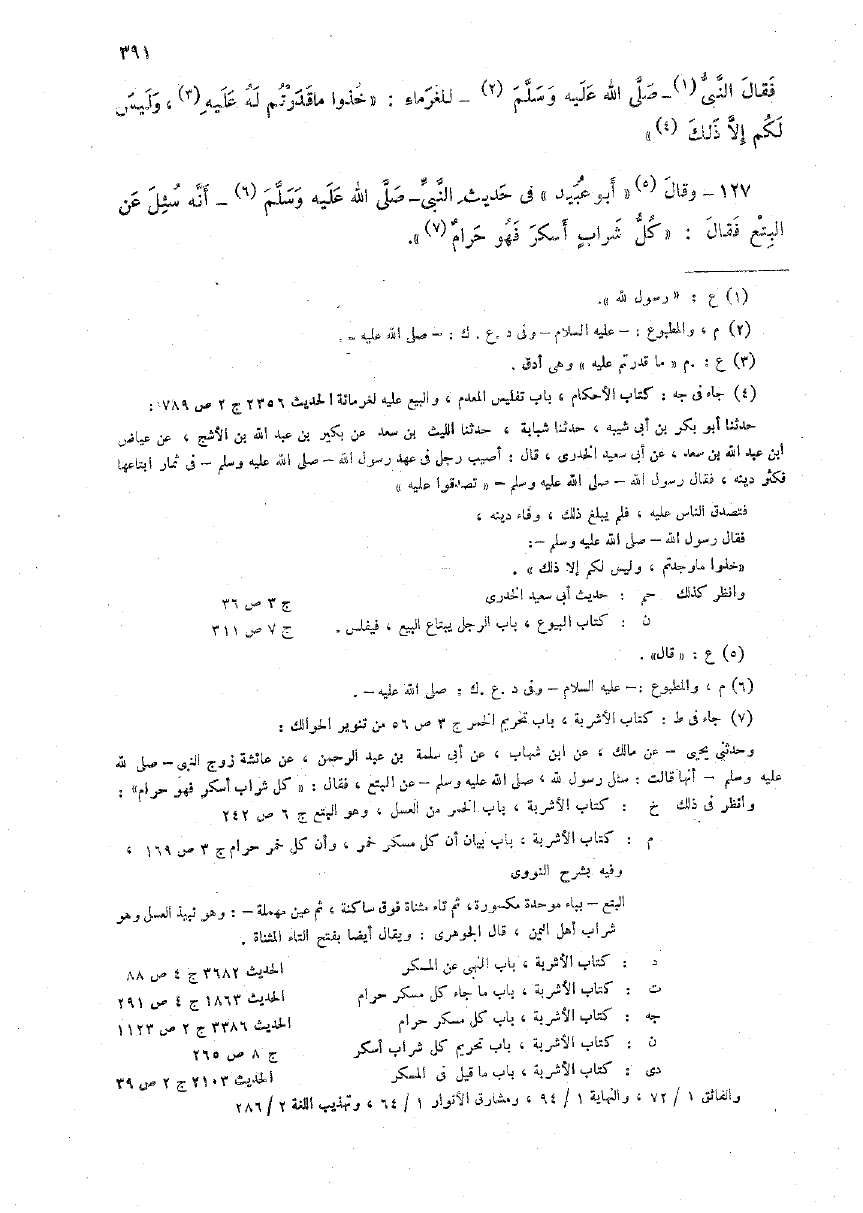 ٣٩١
فَقالَ النَّبِيُّ (١) – صَلَّى الله عَلَيه وَسَلَّمَ (٢) – للغُرَماء : «خُذوا ماقَدَرْتُم لَهُ عَلَيه (٣) ، وَلَيسَ
لَكُم إلاَّ ذَلكَ (٤)»
١٢٧ – وقالَ (٥) « أَبو عُبَيد » فى حَديث النَّبيِّ – صَلَّى الله عَلَيه وَسَلَّمَ (٦) – أَنَّه سُئِلَ عَن
البِتْع فَقالَ : «كُلُّ شَرابٍ أَسكرَ فَهُو حَرامٌ (٧)».
(١) ع : «رسول لله».
(٢) م ، والمطبوع : – عليه السلام – وفى د . ع . ك : – صلى الله عليه – .
(٣) ع : م « ما قدرتم عليه » وهى أدق .
(٤) جاء فى جه : كتاب الأحكام ، باب تفليس المعدم ، والبيع عليه لغرمائة الحديث ٢٣٥٦ ج ٢ ص ٧٨٩ :
حدثنا أبو بكر بن أبى شيبه ، حدثنا شبابة ، حدثنا الليث بن سعد عن بكير بن عبد الله بن الأشج ، عن عياض
ابن عبد الله بن سعد ، عن أبى سعيد الخدرى ، قال : أصيب رجل فى عهد رسول الله – صلى الله عليه وسلم – فى ثمار ابتاعها
فكثر دينه ، فقال رسول الله – صلى الله عليه وسلم – « تصدقوا عليه »
فتصدق الناس عليه ، فلم يبلغ ذلك ، وفاء دينه ،
فقال رسول الله – صلى الله عليه وسلم – :
«خذوا ماوجدتم ، وليس لكم إلا ذلك » .
وانظر كذلك حم : حديث أبى سعيد الخدرى ج ٣ ص ٣٦
ن : كتاب البيوع ، باب الرجل يبتاع البيع ، فيفلس . ج ٧ ص ٣١١
(٥) ع : «قال» .
(٦) م ، والمطبوع : – عليه السلام – وفى د . ع . ك : صلى الله عليه – .
(٧) جاء فى ط : كتاب الأشربة ، باب تحريم الخمر ج ٣ ص ٥٦ من تنوير الحوالك :
وحدثنى يحيى – عن مالك ، عن ابن شهاب ، عن أبى سلمة بن عبد الرحمن ، عن عائشة زوج النبى – صلى لله
عليه وسلم – أنها قالت : سئل رسول لله ، صلى الله عليه وسلم – عن البتع ، فقال : « كل شراب أسكر فهو حرام» :
وانظر فى ذلك خ : كتاب الأشربة ، باب الخمر من العسل ، وهو البتع ج ٦ ص ٢٤٢
م : كتاب الأشربة ، باب بيان أن كل مسكر خمر ، وأن كل خمر حرام ج ٣ ص ١٦٩ ،
وفيه بشرح النووى
البتع – بباء موحدة مكسورة، ثم تاء مثناة فوق ساكنة ، ثم عين مهملة – : وهو نبيذ العسل وهو
شراب أهل اليمن ، قال الجوهرى : ويقال أيضا بفتح التاء المثناة .
د : كتاب الأشربة ، باب النهى عن المسكر الحديث ٣٦٨٢ ج ٤ ص ٨٨
ت : كتاب الأشربة ، باب ما جاء كل مسكر حرام الحديث ١٨٦٣ ج ٤ ص ٢٩١
جه : كتاب الأشربة ، باب كل مسكر حرام الحديث ٣٣٨٦ ج ٢ ص ١١٢٣
ن : كتاب الأشربة ، باب تحريم كل شراب أسكر ج ٨ ص ٢٦٥
دى : كتاب الأشربة ، باب ما قيل فى المسكر الحديث ٢١٠٣ ج ٢ ص ٣٩
والفائق ١ / ٧٢ ، والنهاية ١ / ٩٤ ، ومشارق الأنوار ١ / ٦٤ ، وتهذيب اللغة ٢ / ٢٨٦